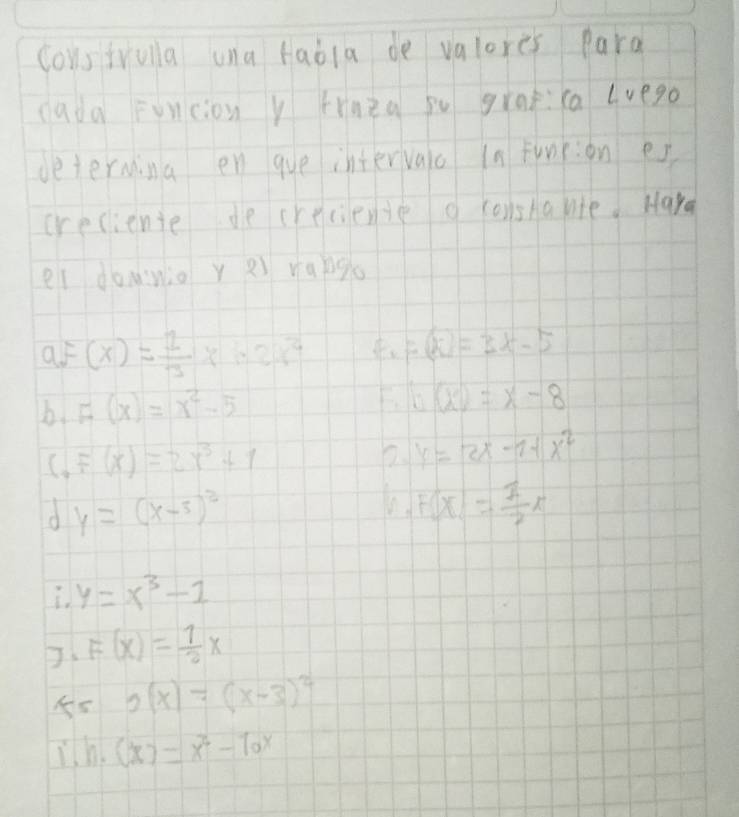 Construlla una tabla de valores para
cada Funcion y traza su grafica Luego
determina en que intervalo la funcion es
creciente de creciente o constante. Hara
el dominio y el rango
a F(x) = x - 2x²
F(x) = 3x - 5
b. F(x) = x² - 5
(x) = x - 8
C. F(x) = 2x³ + 1
y = 2x - 1 + x²
d y = (x-3)²
F(x) = x
i. y = x³ - 1
J. F(x) = x
(x) = (x-3)
h.(x) = x² - 10x